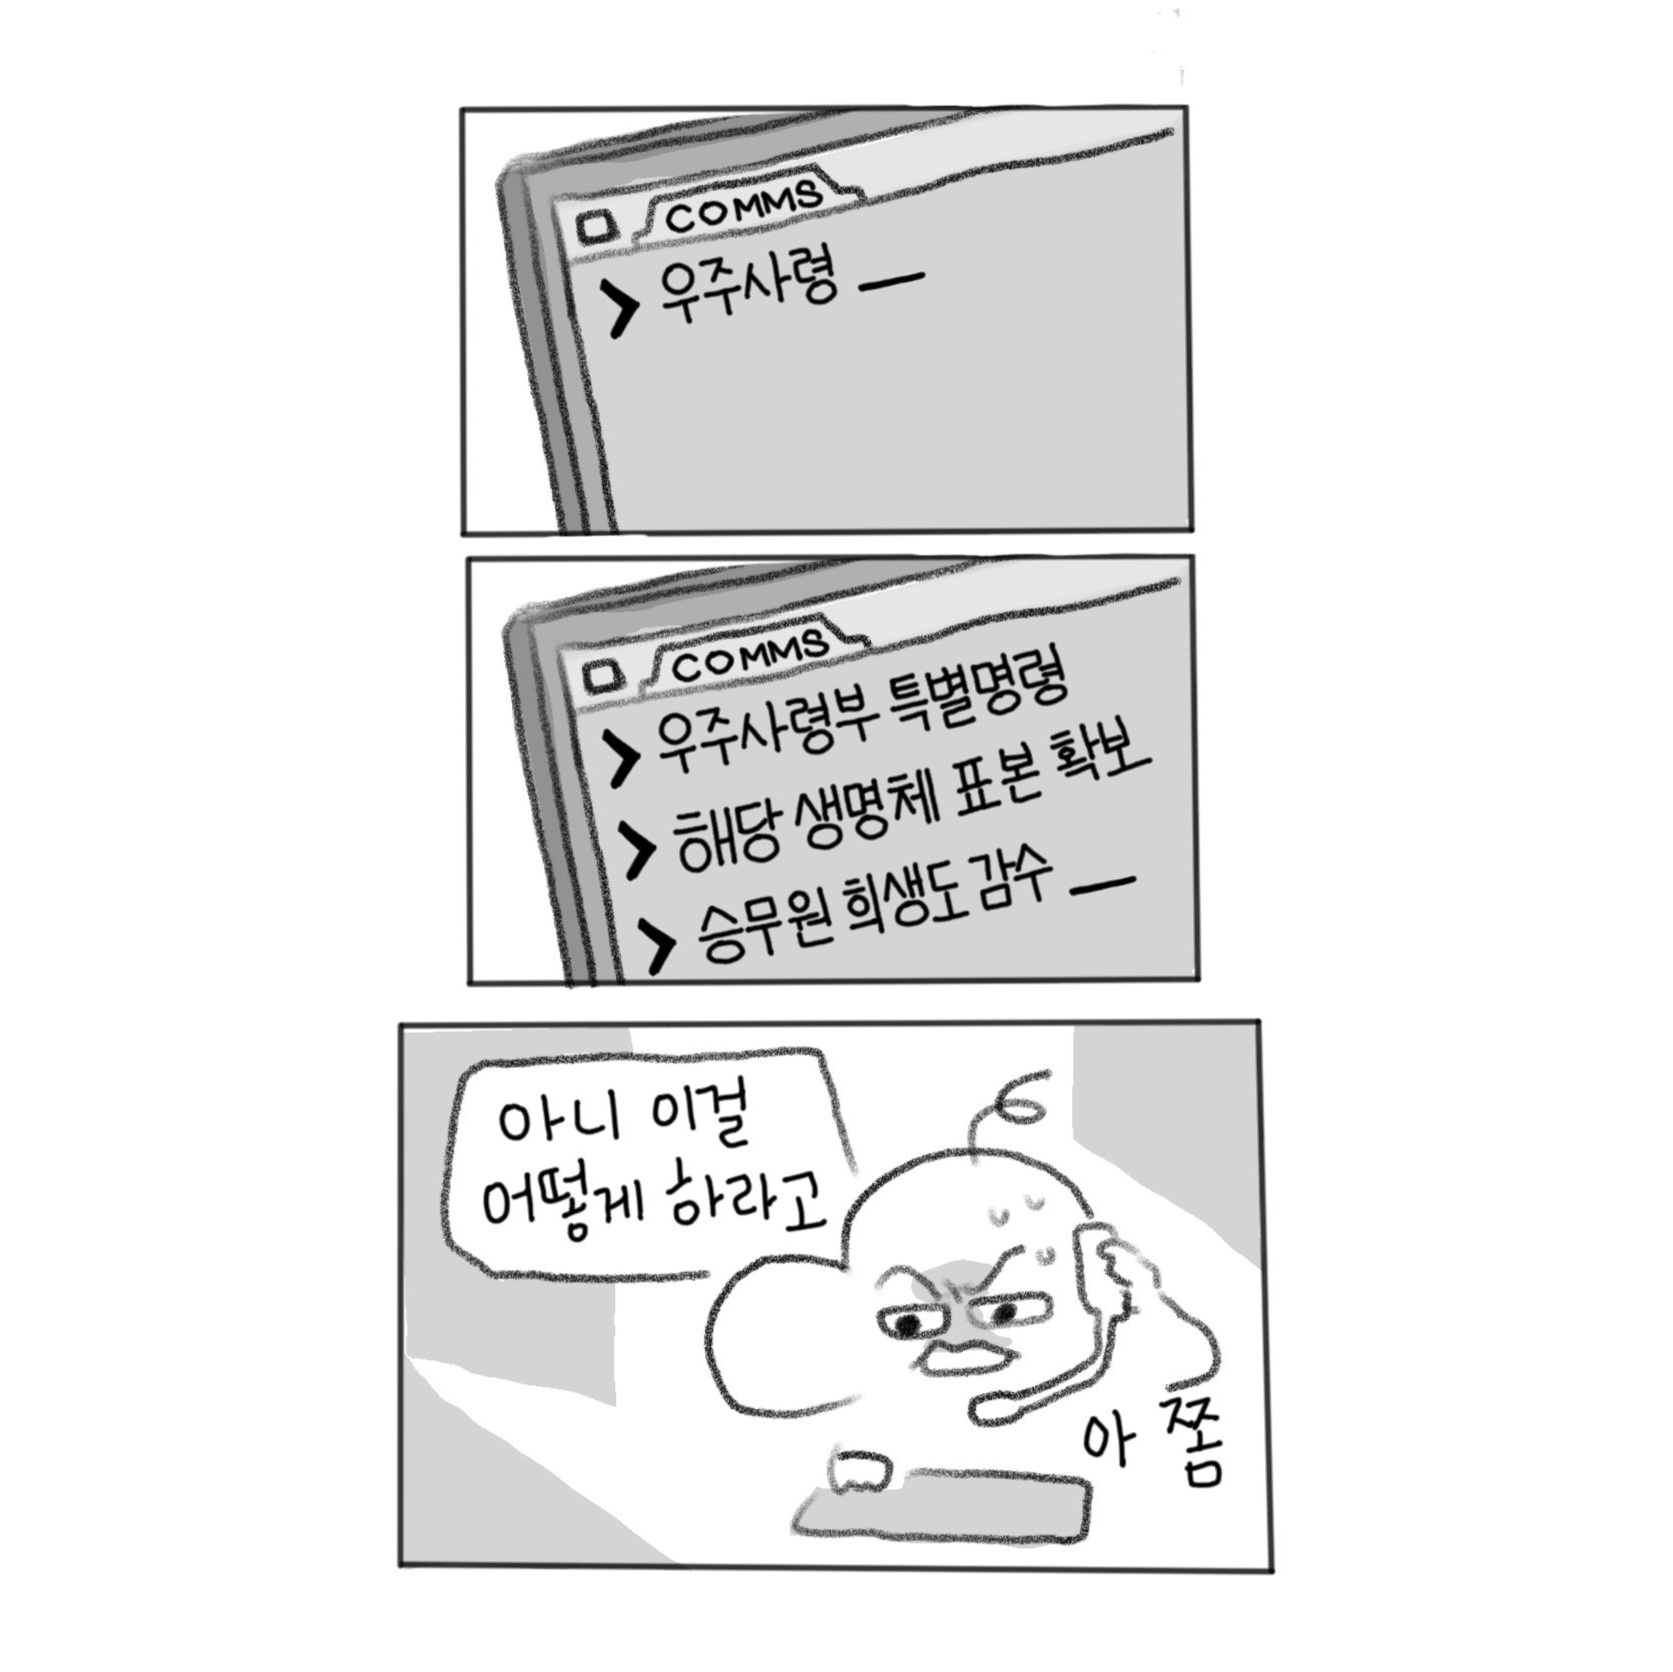 COMMS
> 우주사령_
COMMS
> 우주사령부 특별명령
> 해당 생명체 표본 확보
> 승무원 희생도 감수_
아니 이걸
어떻게 하라고
아 쫌